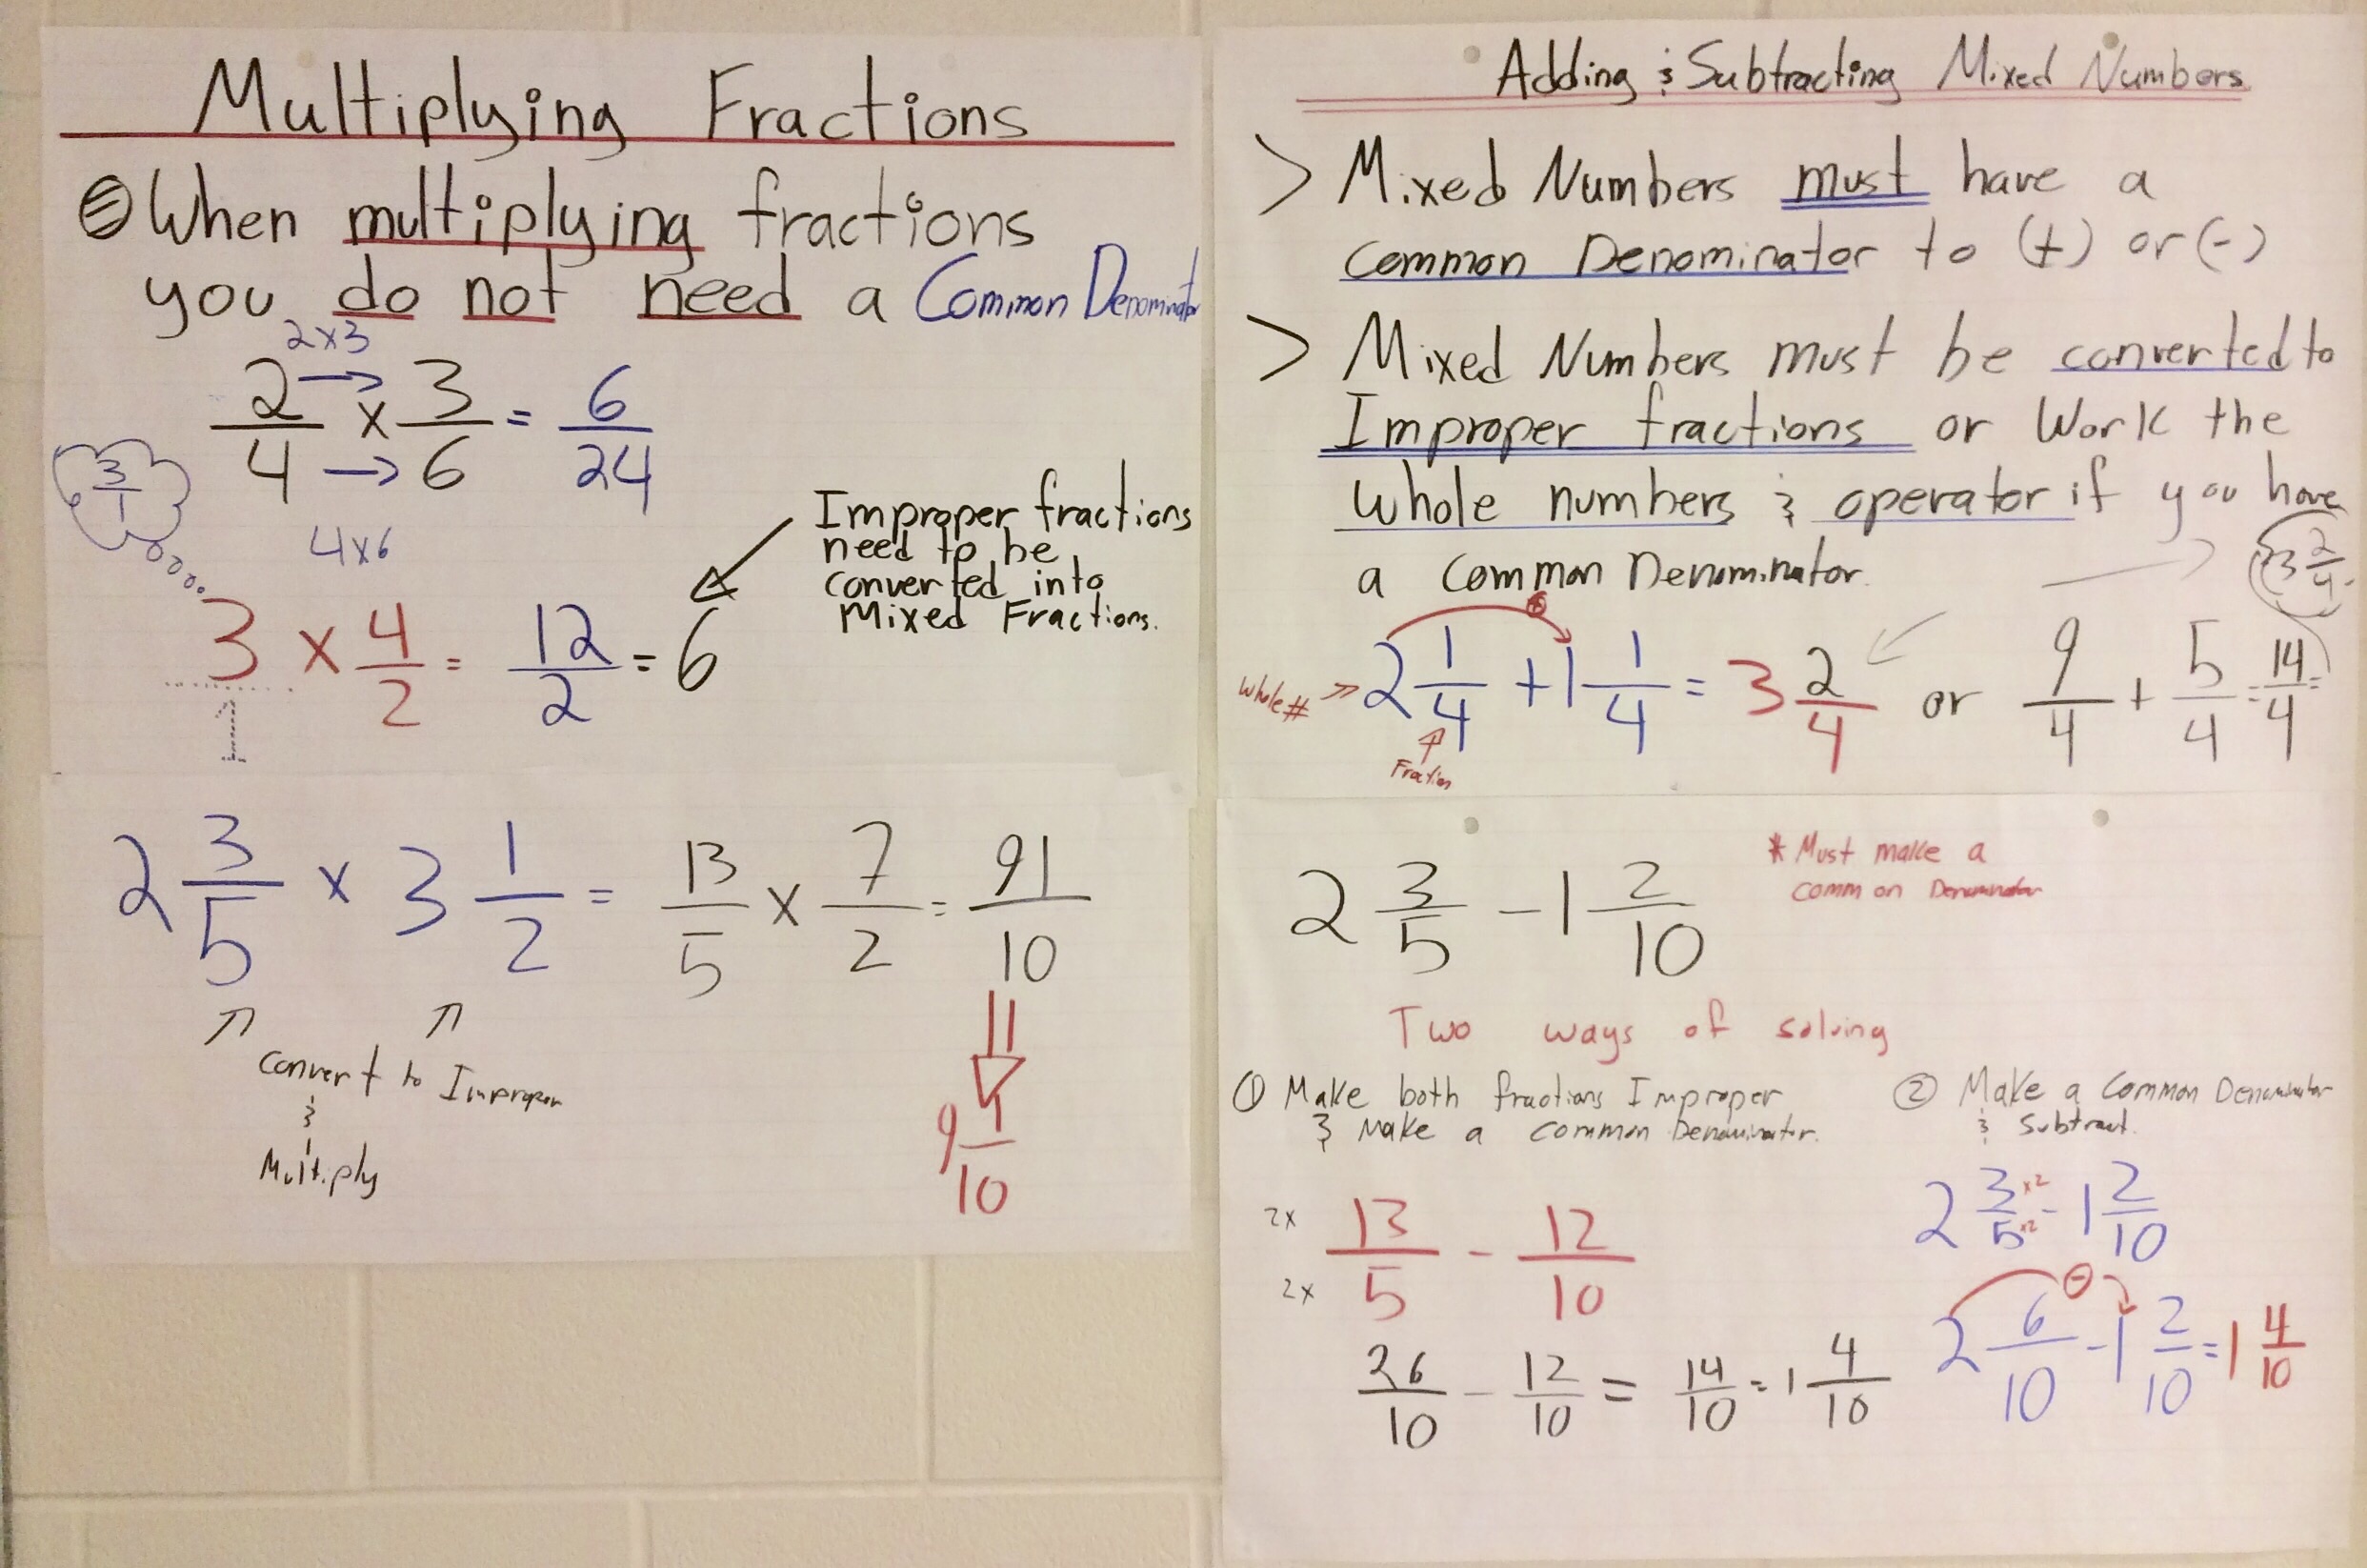 Multiplying Fractions
When multiplying fractions
you do not need a Common Denominator
2x3
2/4 x 3/6 = 6/24
4x6
3/1
Improper fractions
need to be
converted into
Mixed Fractions.
3/1 x 4/2 = 12/2 = 6
2 3/5 x 3 1/2 = 13/5 x 7/2 = 91/10
Convert to Improper
&
Multiply
9 1/10
Adding & Subtracting Mixed Numbers
> Mixed Numbers must have a
Common Denominator to (+) or (-)
> Mixed Numbers must be converted to
Improper fractions or Work the
whole numbers & operator if you have
a Common Denominator.
3 2/4
+
Whole # 2 1/4 + 1 1/4 = 3 2/4 or 9/4 + 5/4 = 14/4 =
Fraction
2 3/5 - 1 2/10
* Must make a
common Denominator
Two ways of solving
① Make both fractions Improper
& Make a common Denominator.
2x 13/5 - 12/10
2x
26/10 - 12/10 = 14/10 = 1 4/10
② Make a Common Denominator
& Subtract.
2 3/5 x2 x2 - 1 2/10
-
2 6/10 - 1 2/10 = 1 4/10